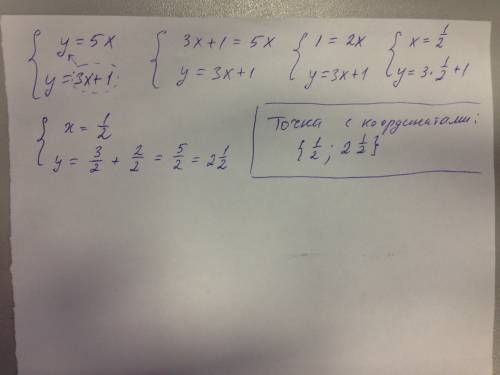 { y = 5x { 3x+1 = 5x { 1 = 2x { x = 1/2
y = 3x+1 y = 3x+1 y = 3x+1 y = 3·1/2 + 1
{ x = 1/2
y = 3/2 + 2/2 = 5/2 = 2 1/2
Точка с координатами:
{1/2; 2 1/2}